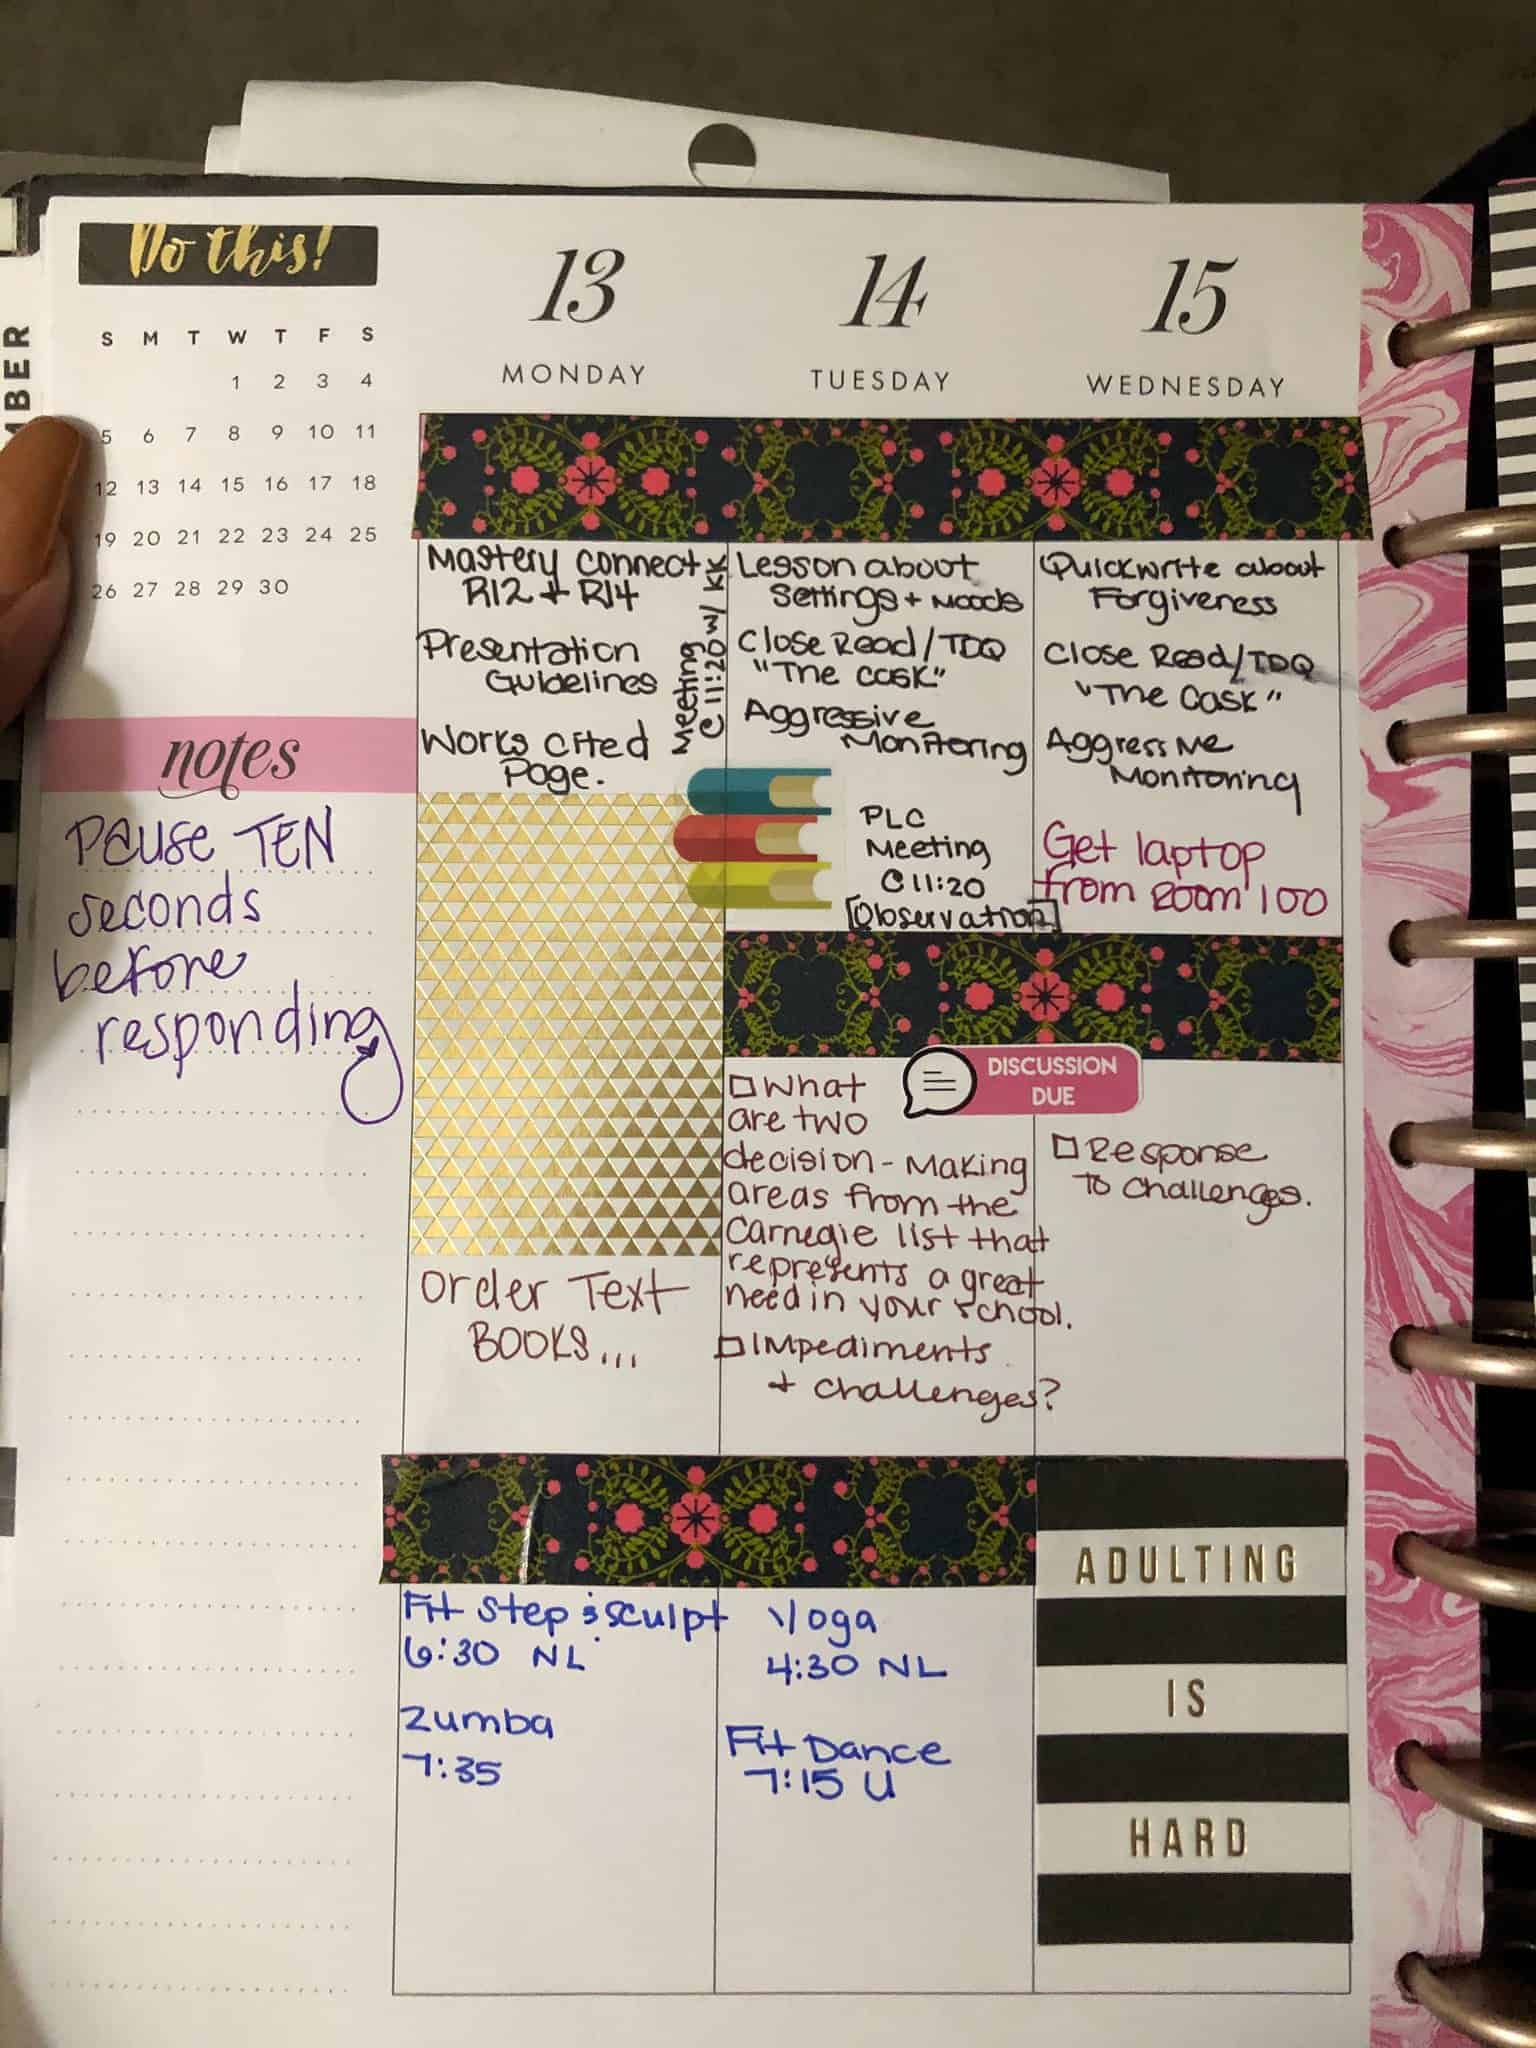 Do this!
MBER
S M T W T F S
1 2 3 4
5 6 7 8 9 10 11
12 13 14 15 16 17 18
19 20 21 22 23 24 25
26 27 28 29 30
notes
Pause TEN
seconds
before
responding
13
MONDAY
Mastery Connect
RI2 + RI4
Presentation
Guidelines
Works Cited
Page.
Meeting
@ 11:20 w/ KK
Order Text
BOOKS...
Fit Step & Sculpt
6:30 NL
Zumba
7:35
14
TUESDAY
Lesson about
Settings + Moods
Close Read/TDQ
"The Cask"
Aggressive
Monitoring
PLC
Meeting
@ 11:20
[Observation]
DISCUSSION
DUE
What
are two
decision-making
areas from the
Carnegie list that
represents a great
need in your school.
Impediments
+ challenges?
Yoga
4:30 NL
Fit Dance
7:15 U
15
WEDNESDAY
Quickwrite about
Forgiveness
Close Read/TDQ
"The Cask"
Aggressive
Monitoring
Get laptop
from Room 100
Response
to challenges.
ADULTING
IS
HARD